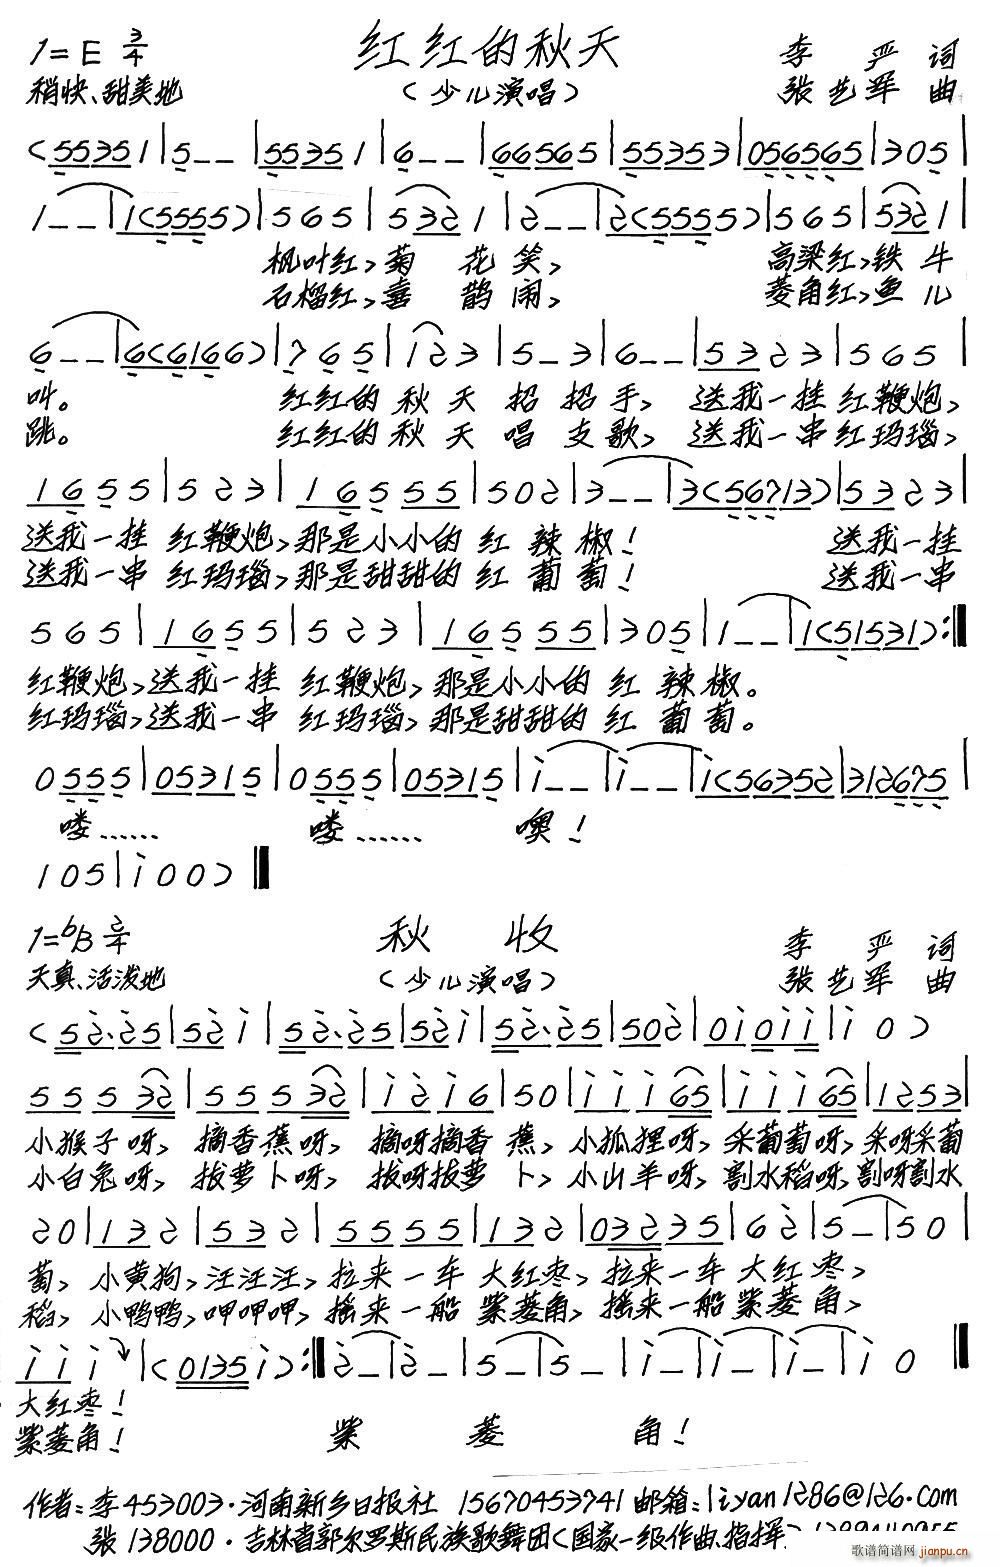 1=E 3/4 红红的秋天 李严词
稍快、甜美地 (少儿演唱) 张艺军曲
(5535 1 | 5 - - | 5535 1 | 6 - - | 66565 | 55353 | 056565 | 305 |
1 - - | 1(5555) | 5 6 5 | 5 32 1 | 2 - - | 2(5555) | 5 6 5 | 532 1 |
枫叶红,菊 花 笑, 高梁红,铁 牛
石榴红,喜 鹊 闹, 菱角红,鱼 儿
6 - - | 6(6166) | 7 6 5 | 1 2 3 | 5 - 3 | 6 - - | 5 3 2 3 | 5 6 5 |
叫。 红红的 秋 天 招 招 手, 送我一挂 红鞭炮,
跳。 红红的 秋 天 唱 支 歌, 送我一串 红玛瑙,
1 6 5 5 | 5 2 3 | 1 6 5 5 5 | 5 0 2 | 3 - - | 3(56713) | 5 3 2 3 |
送我一挂 红鞭炮,那是小小的 红 辣 椒! 送我一挂
送我一串 红玛瑙,那是甜甜的 红 葡 萄! 送我一串
5 6 5 | 1 6 5 5 | 5 2 3 | 1 6 5 5 5 | 3 0 5 | 1 - - | 1(51531) :‖
红鞭炮,送我一挂 红鞭炮,那是小小的 红 辣 椒。
红玛瑙,送我一串 红玛瑙,那是甜甜的 红 葡 萄。
0 5 5 5 | 0 5 3 1 5 | 0 5 5 5 | 0 5 3 1 5 | i - - | i - - | i(56352 | 312675 |
喽…… 喽…… 噢!
1 0 5 | i 0 0 ) ‖
1=bB 2/4 秋 收 李严词
天真、活泼地 (少儿演唱) 张艺军曲
(52·25 | 52 i | 52·25 | 52 i | 52·25 | 502 | 0i0ii | i 0 )
5 5 5 32 | 5 5 5 32 | i 2 i 6 | 5 0 | i i i 65 | i i i 65 | 1 2 5 3 |
小猴子呀, 摘香蕉呀, 摘呀摘香 蕉, 小狐狸呀, 采葡萄呀, 采呀采葡
小白兔呀, 拔萝卜呀, 拔呀拔萝 卜, 小山羊呀, 割水稻呀, 割呀割水
2 0 | 1 3 2 | 5 3 2 | 5 5 5 5 | 1 3 2 | 0 3 2 3 5 | 6 2 | 5 - | 5 0 |
萄, 小黄狗,汪汪汪, 拉来一车 大红枣, 拉来一车 大红 枣,
稻, 小鸭鸭,呷呷呷, 摇来一船 紫菱角, 摇来一船 紫菱 角,
i i i | (0135 i ) :‖ 2 - | 2 - | 5 - | 5 - | i - | i - | i - | i 0 ‖
大红枣!
紫菱角! 紫 菱 角!
作者:李453003·河南新乡日报社 15670453741 邮箱:liyan1286@126.com
张138000·吉林省郭尔罗斯民族歌舞团(国家一级作曲、指挥)
歌谱简谱网
jianpu.cn